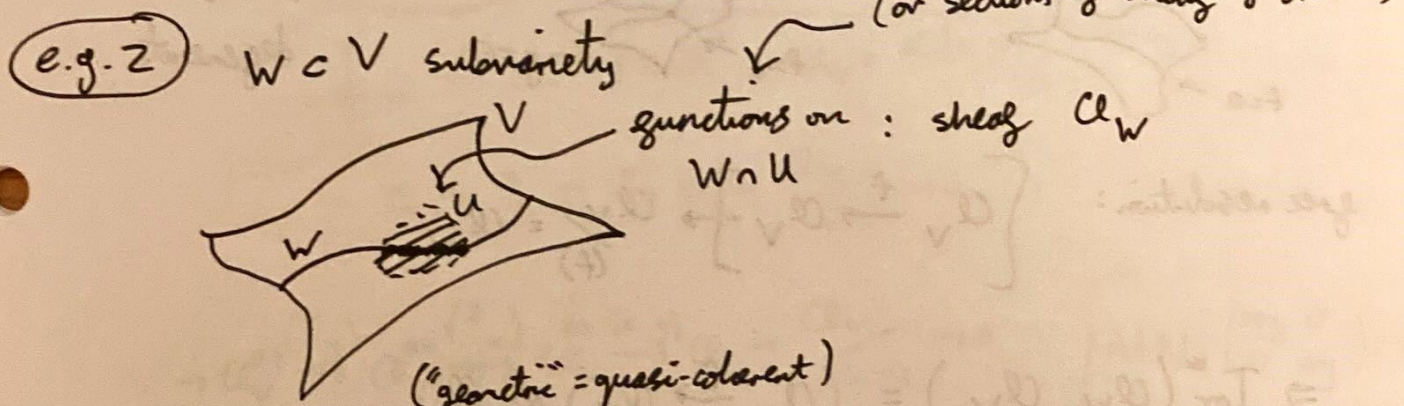 (or sections of
e.g. 2 W ⊂ V subvariety
functions on : sheaf 𝒪_W
W ∩ U
V
U
W
("geometric" = quasi-coherent)